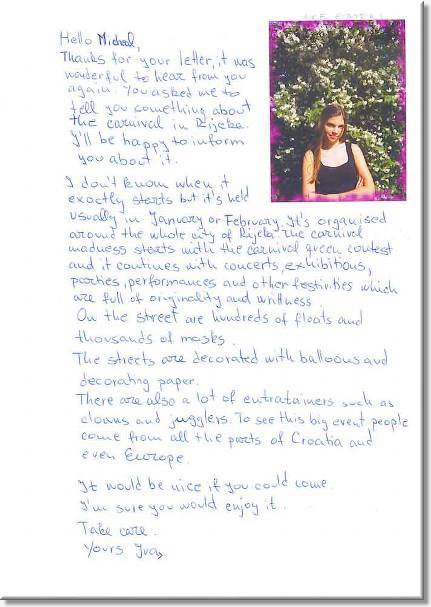 Hello Michael,
Thanks for your letter, it was
wonderful to hear from you
again. You asked me to
tell you something about
the carnival in Rijeka.
I'll be happy to inform
you about it.
I don't know when it
exactly starts but it's held
usually in January or February. It's organised
around the whole city of Rijeka. The carnival
madness starts with the carnival queen contest
and it continues with concerts, exhibitions,
parties, performances and other festivities which
are full of originality and
On the street are hundreds of floats and
thousands of masks.
The streets are decorated with balloons and
decorating paper.
There are also a lot of entratainers such as
clowns and jugglers. To see this big event, people
come from all the parts of Croatia and
even Europe.
It would be nice if you could come.
I'm sure you would enjoy it.
Take care.
Yours Iva